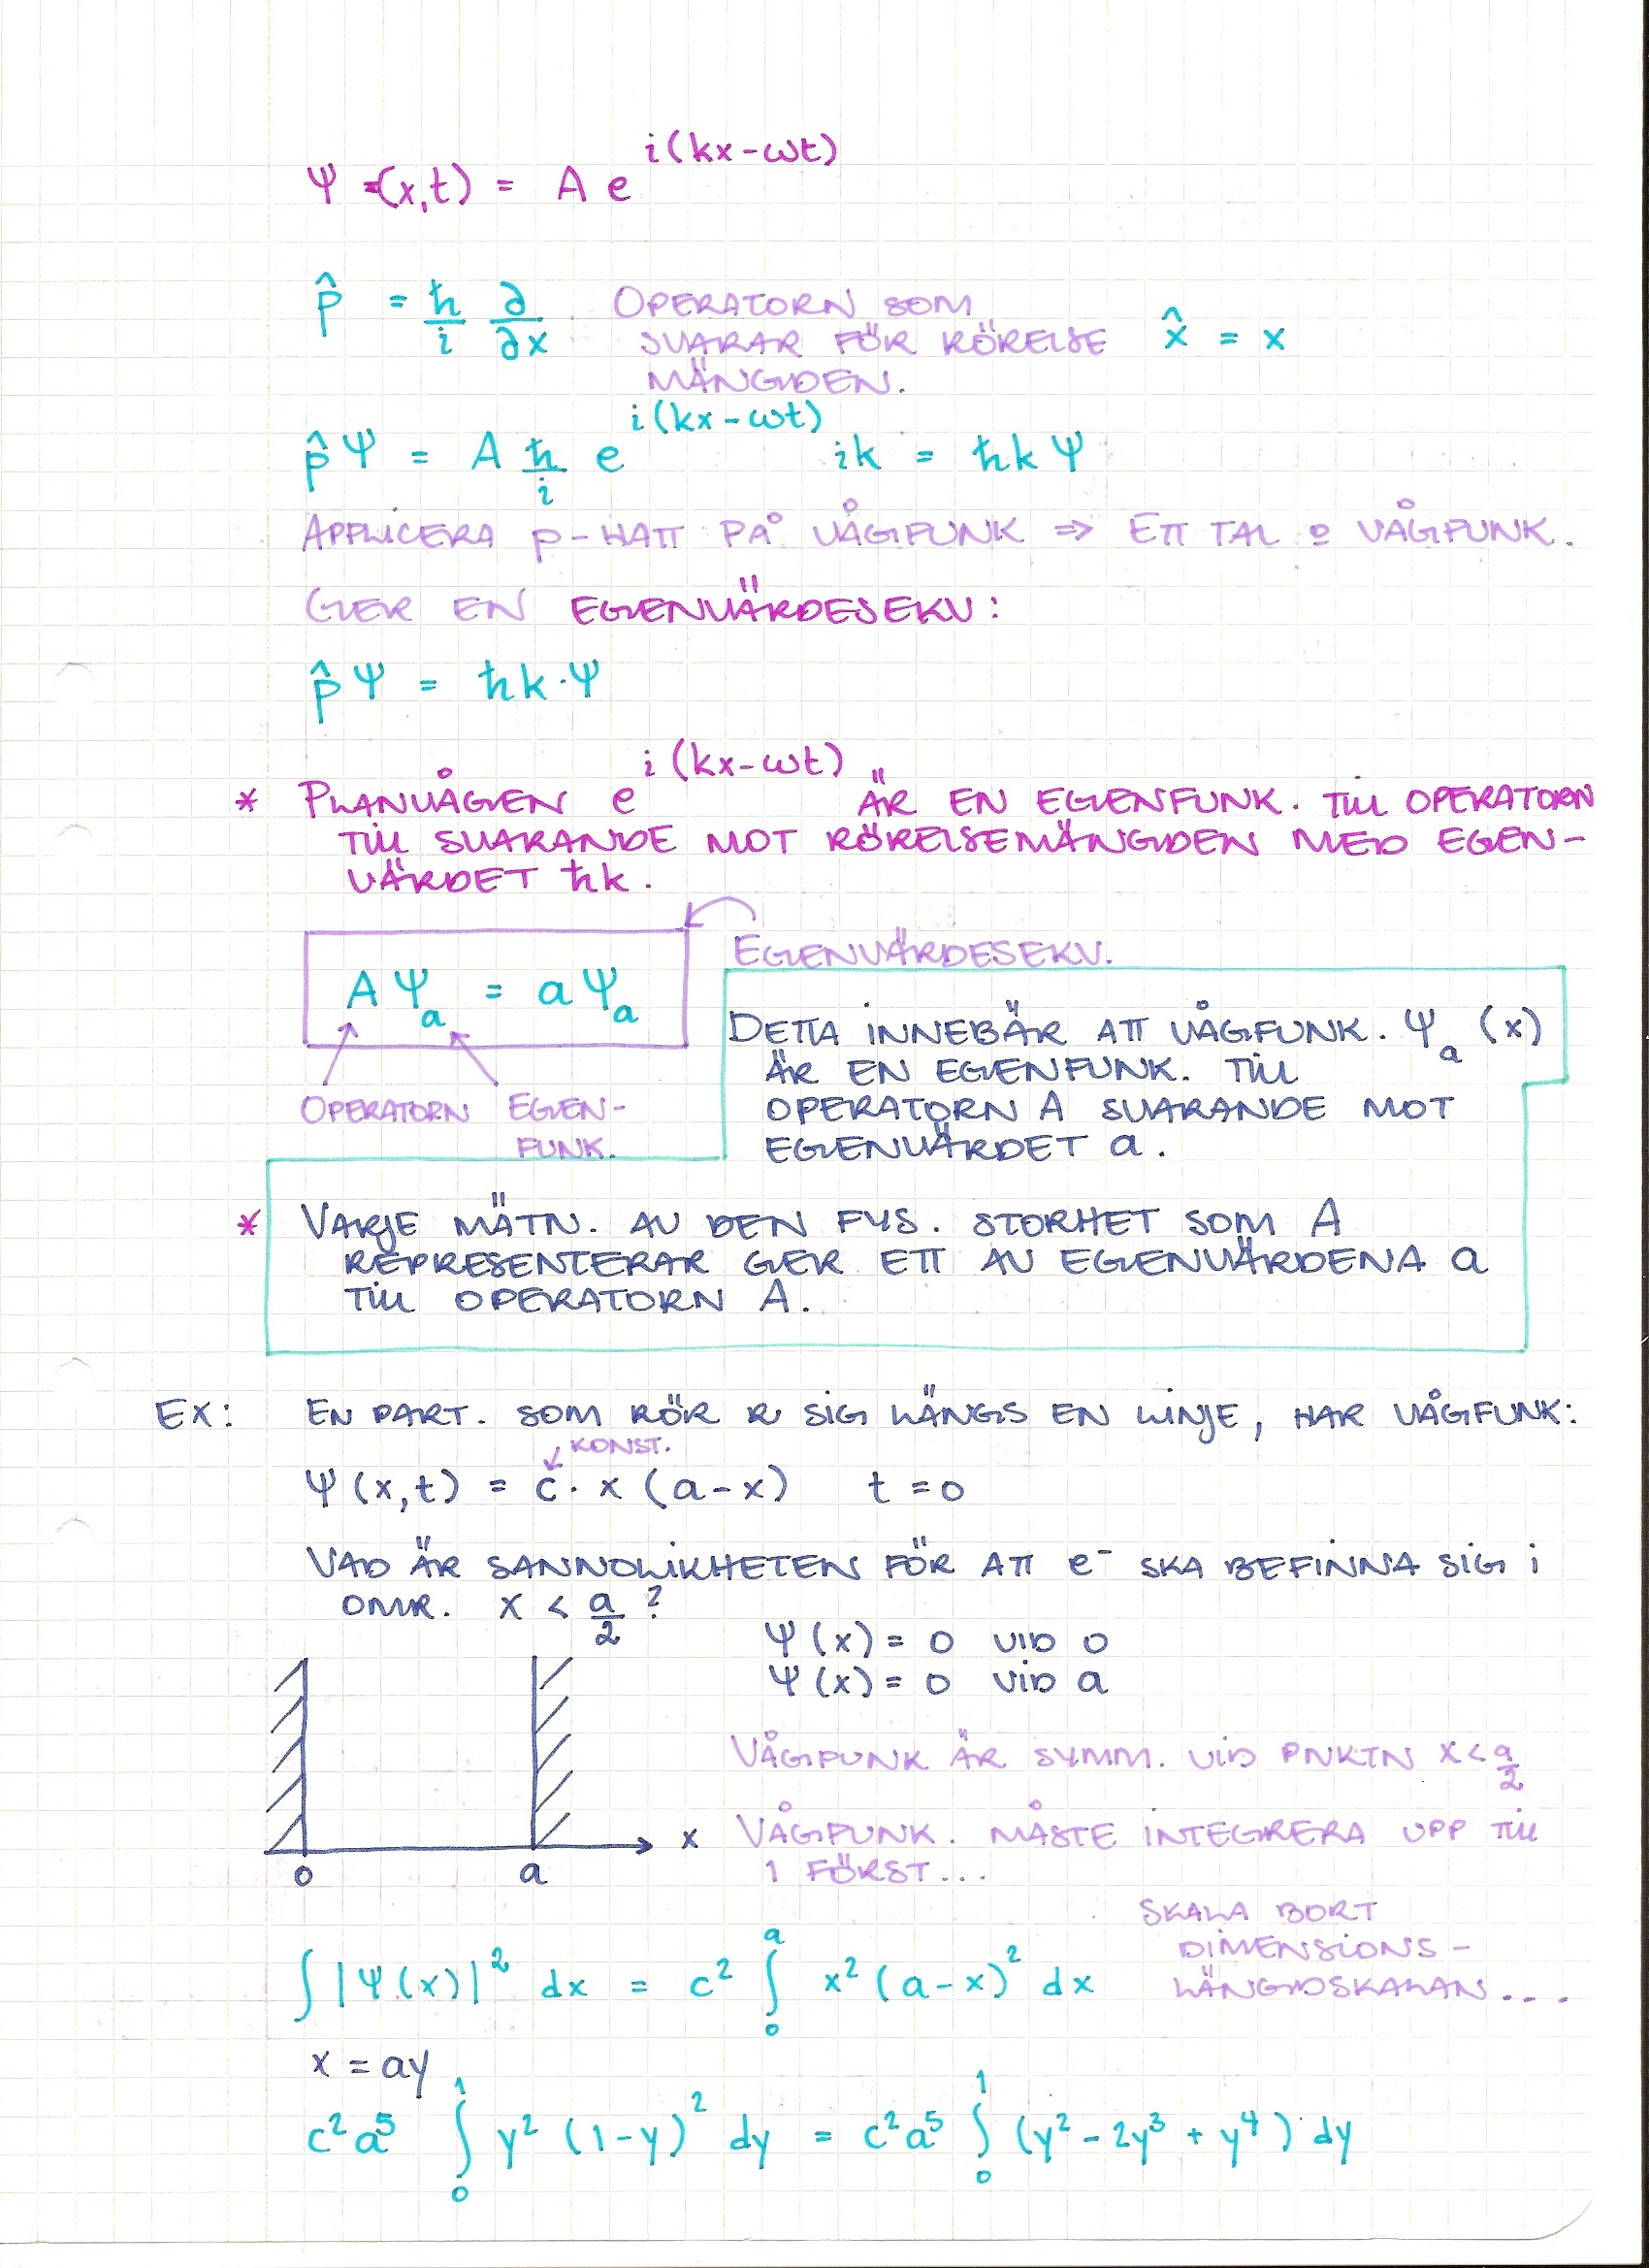 Ψ (x,t) = A e^{i(kx-ωt)}
p̂ = ħ/i ∂/∂x OPERATORN SOM
SVARAR FÖR RÖRELSE x̂ = x
MÄNGDEN.
p̂Ψ = A ħ/i e^{i(kx-ωt)} ik = ħkΨ
APPLICERA p-HATT PÅ VÅGFUNK ⇒ ETT TAL o VÅGFUNK.
GER EN EGENVÄRDESEKV:
p̂Ψ = ħk·Ψ
* PLANVÅGEN e^{i(kx-ωt)} ÄR EN EGENFUNK. TILL OPERATORN
TILL SVARANDE MOT RÖRELSEMÄNGDEN MED EGEN-
VÄRDET ħk.
EGENVÄRDESEKV.
AΨ_a = aΨ_a
OPERATORN EGEN-
FUNK.
DETTA INNEBÄR ATT VÅGFUNK. Ψ_a (x)
ÄR EN EGENFUNK. TILL
OPERATORN A SVARANDE MOT
EGENVÄRDET a.
* VARJE MÄTN. AV DEN FYS. STORHET SOM A
REPRESENTERAR GER ETT AV EGENVÄRDENA a
TILL OPERATORN A.
EX: EN PART. SOM RÖR R SIG LÄNGS EN LINJE, HAR VÅGFUNK:
KONST.
Ψ(x,t) = c · x (a-x) t = 0
VAD ÄR SANNOLIKHETEN FÖR ATT e⁻ SKA BEFINNA SIG I
OMR. x < a/2 ?
Ψ(x) = 0 VID 0
Ψ(x) = 0 VID a
VÅGFUNK ÄR SYMM. VID PNKTN x < a/2
x
0 a
VÅGFUNK. MÅSTE INTEGRERA UPP TILL
1 FÖRST...
SKALA BORT
DIMENSIONS-
LÄNGDSKALAN...
∫ |Ψ(x)|² dx = c² ∫_0^a x² (a-x)² dx
x = ay
c²a⁵ ∫_0^1 y² (1-y)² dy = c²a⁵ ∫_0^1 (y² - 2y³ + y⁴) dy